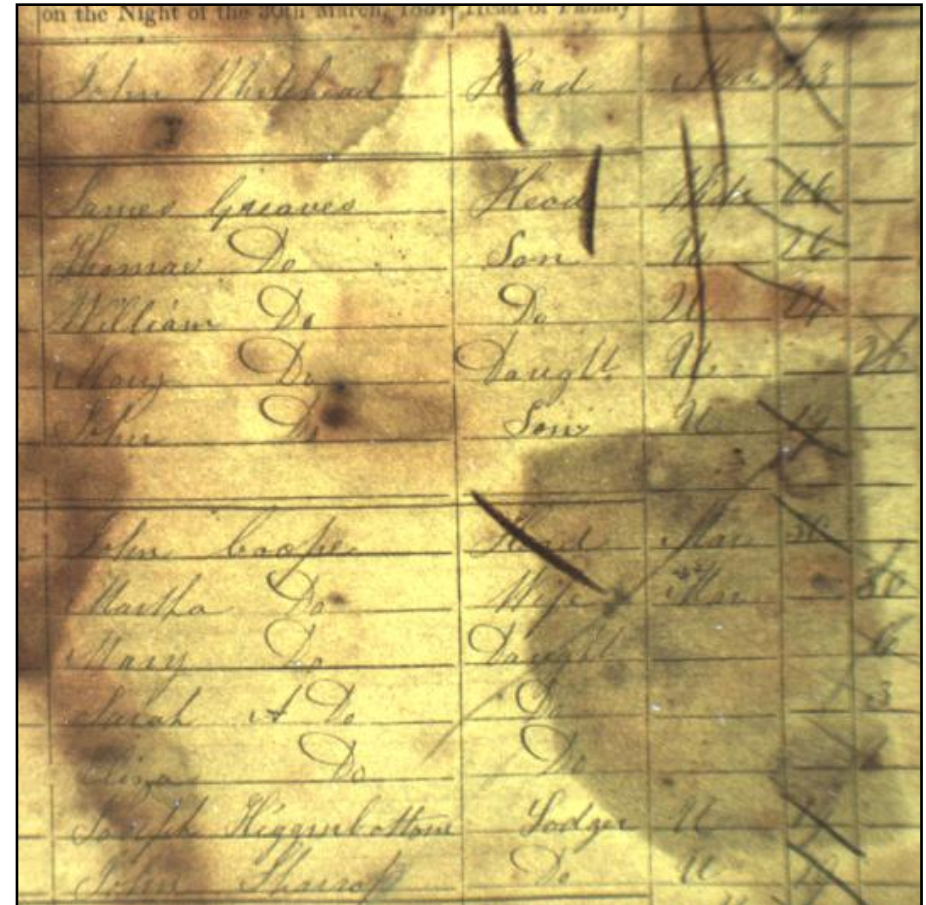 on the Night of the 30th March, 1851 Head of Family
John Whitehead Head Mar 43
James Greaves Head 66
Thomas Do Son U 26
William Do Do U
Mary Do Daught U
John Do Son U
John Cooper Head Mar
Martha Do Wife Mar
Mary Do Daught 6
Sarah A Do Do 3
Eliza Do Do
Joseph Higginbottom Lodger U
John Do U